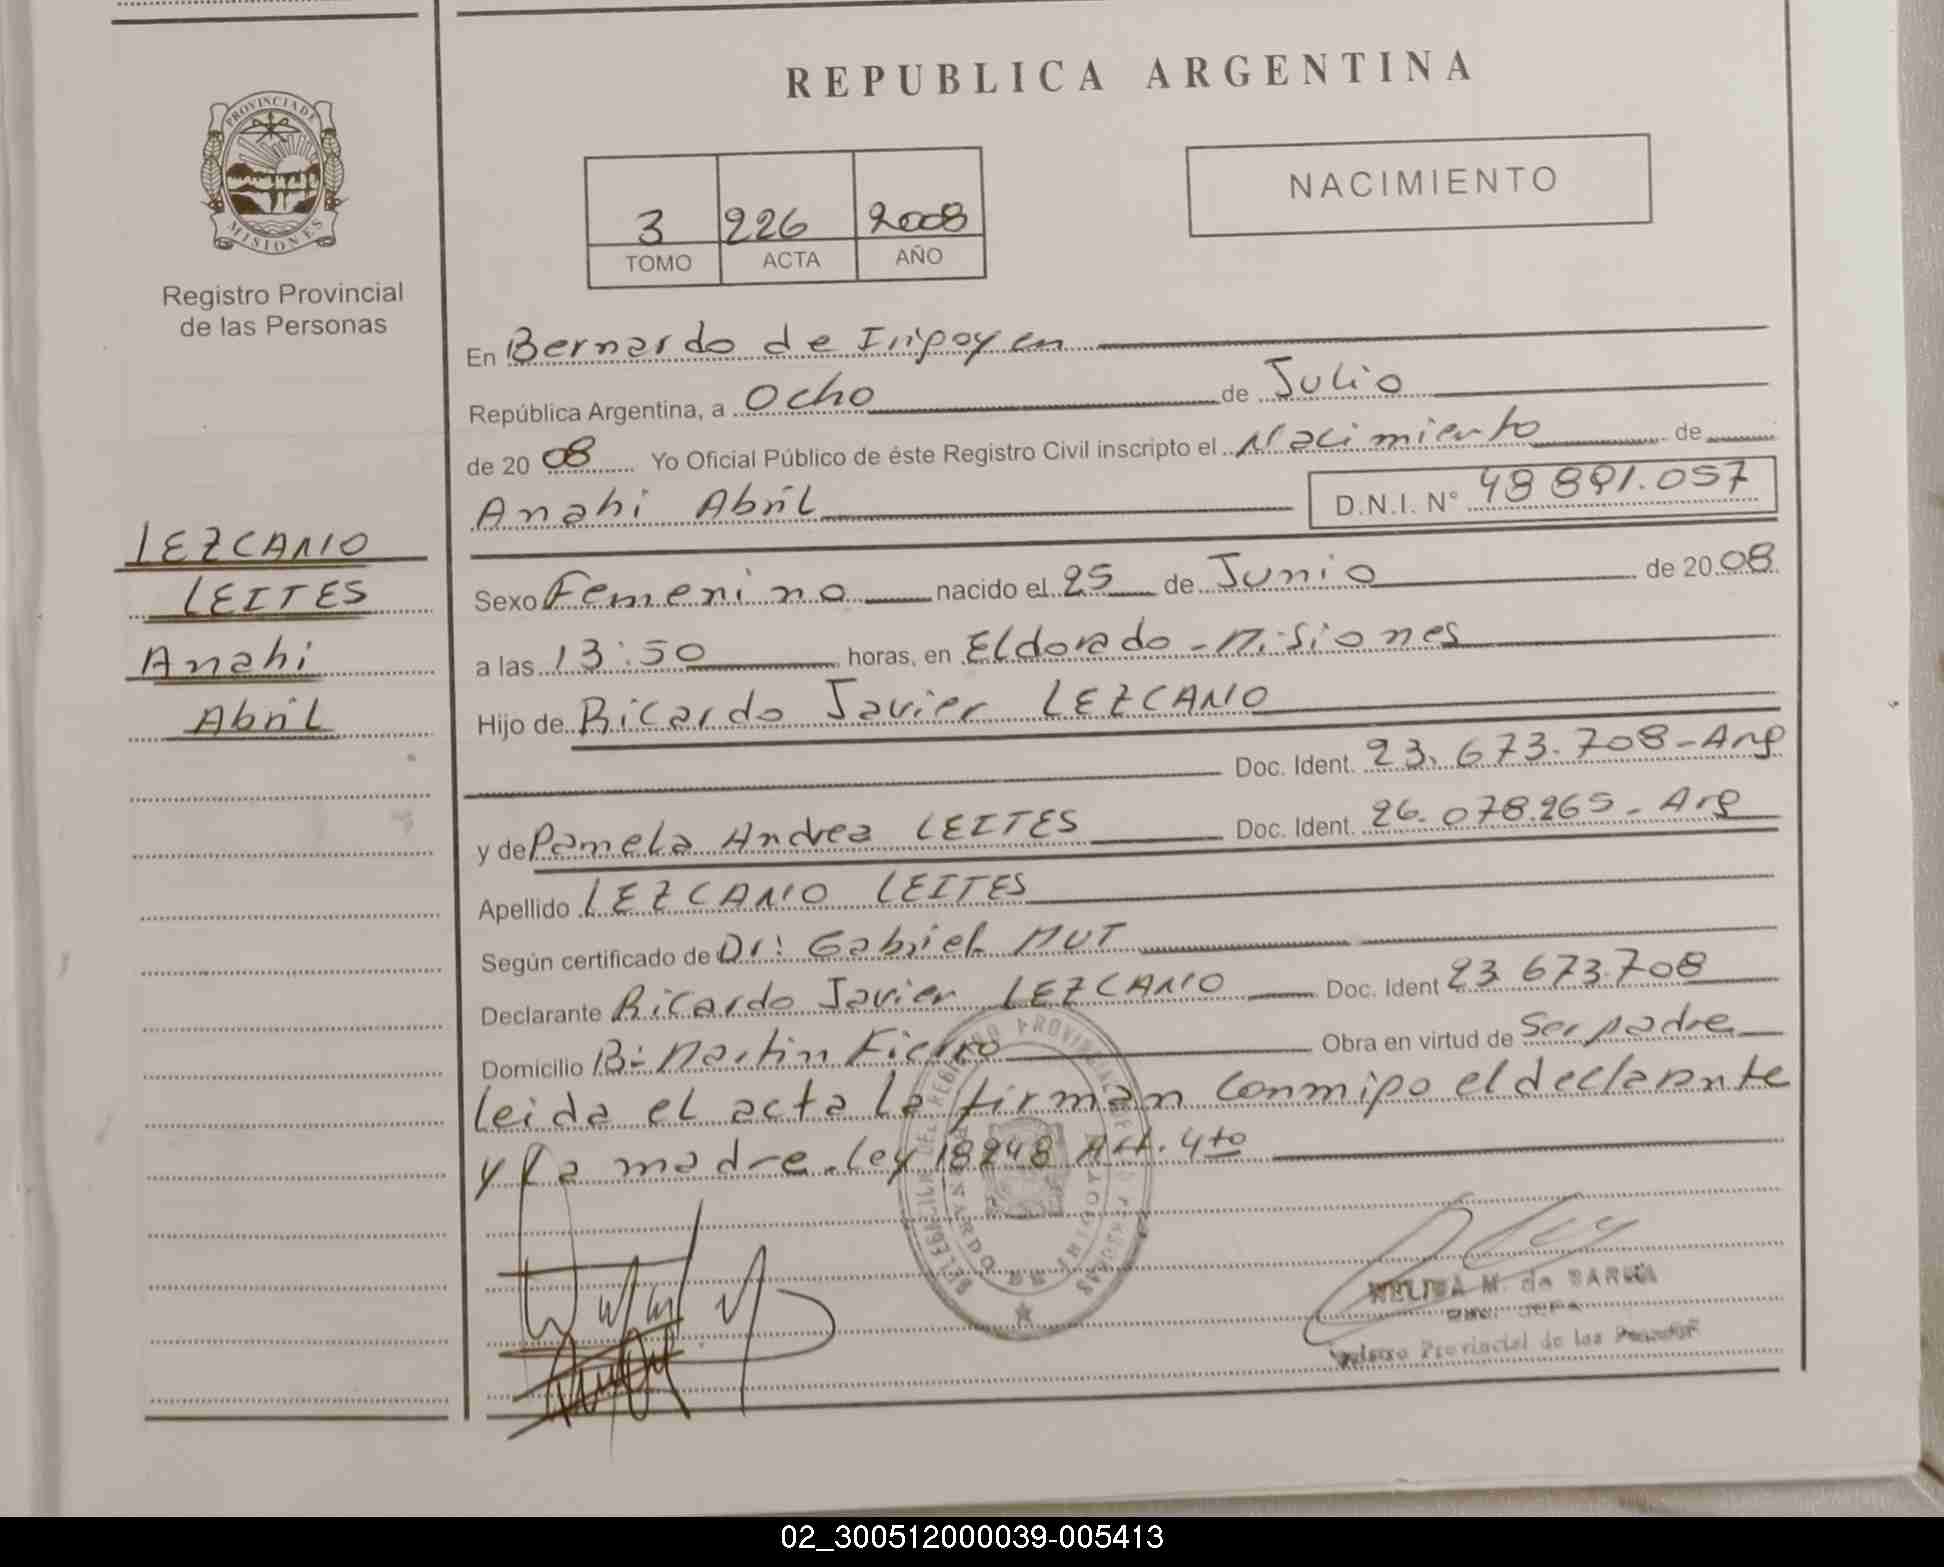 REPUBLICA ARGENTINA
PROVINCIA DE
MISIONES
Registro Provincial
de las Personas
NACIMIENTO
3 226 2008
TOMO ACTA AÑO
En Bernardo de Iripoyen
República Argentina, a Ocho de Julio
de 20 08 Yo Oficial Público de éste Registro Civil inscripto el Nacimiento de
Anahi Abril D.N.I. N° 48 891.057
LEZCANO
LEITES
Anahi
Abril
Sexo Femenino nacido el 25 de Junio de 20 08
a las 13:50 horas, en Eldorado - Misiones
Hijo de Ricardo Javier LEZCANO
Doc. Ident. 23.673.708 - Arg
y de Pamela Andrea LEITES Doc. Ident. 26.078.265 - Arg
Apellido LEZCANO LEITES
Según certificado de Dr: Gabriel MUT
Declarante Ricardo Javier LEZCANO Doc. Ident 23 673.708
Domicilio B: Martin Fierro Obra en virtud de Ser padre
leida el acta la firman conmigo el declarante
y la madre. Ley 18248 Art. 4to
DELEGACION DEL REGISTRO PROVINCIAL DE LAS PERSONAS
BERNARDO DE IRIGOYEN
M. de
Provincial de las
02_300512000039-005413